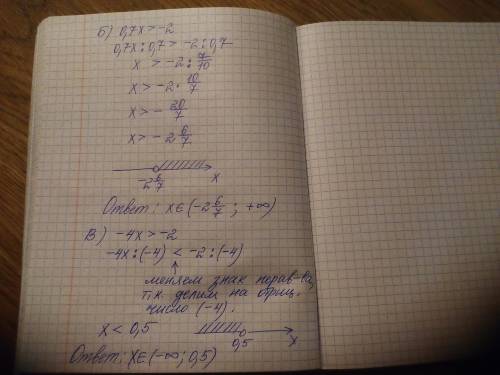 Б) 0,7x > -2
0,7x : 0,7 > -2 : 0,7
x > -2 : 7/10
x > -2 · 10/7
x > - 20/7
x > - 2 6/7
-2 6/7 x
Ответ: x∈(-2 6/7 ; +∞)
В) -4x > -2
-4x : (-4) < -2 : (-4)
меняем знак нерав-ва,
т.к. делим на отриц.
число (-4).
x < 0,5
0,5 x
Ответ: x∈(-∞; 0,5)